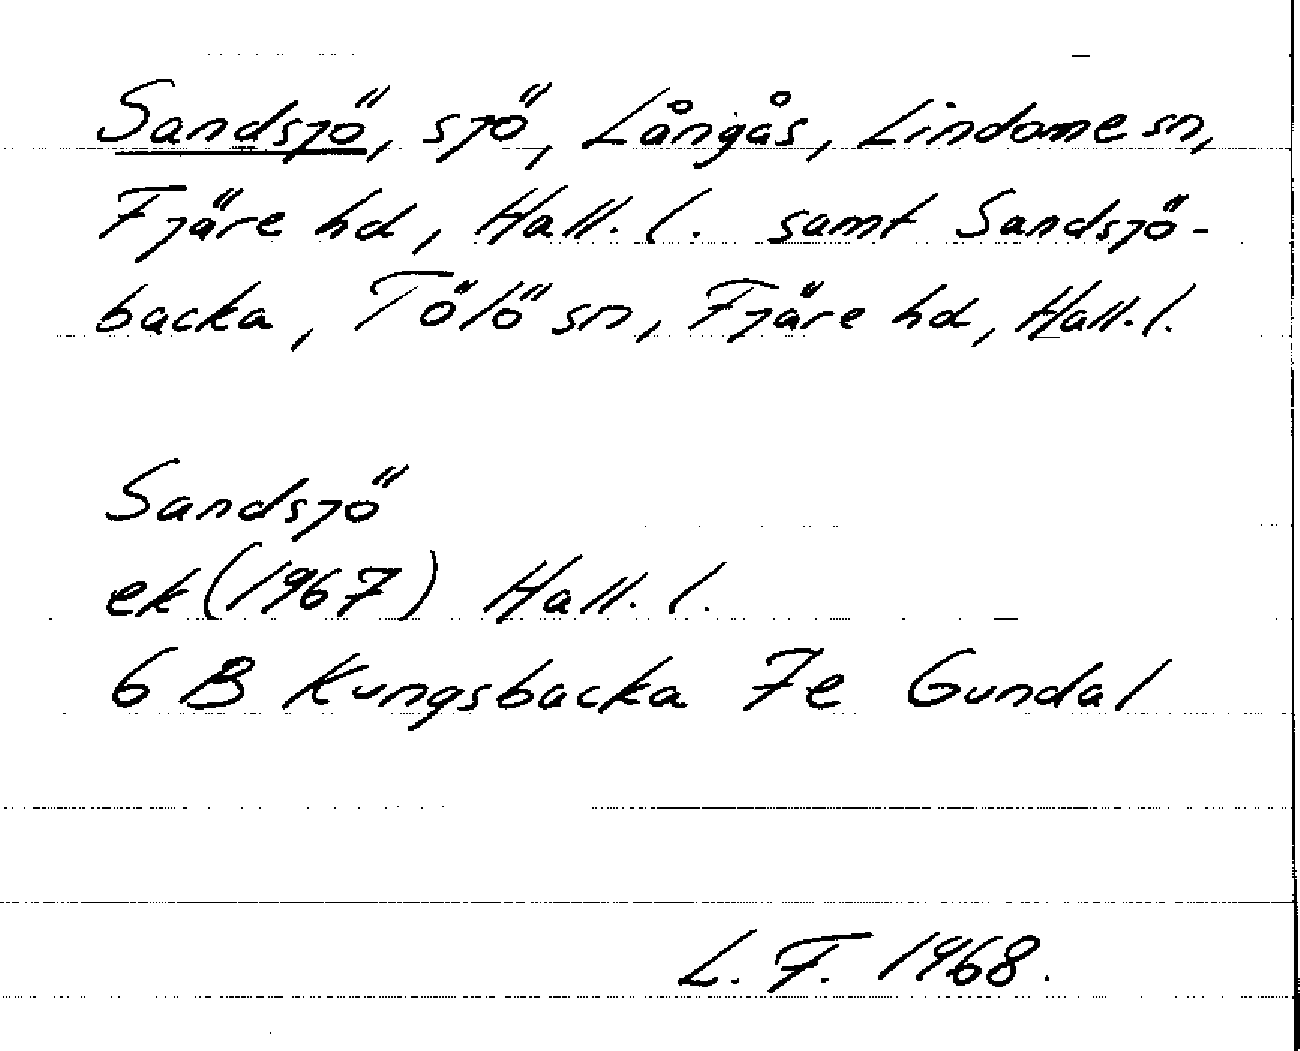 Sandsjö, sjö, Långås, Lindome sn,
Fjäre hd, Hall. l. samt Sandsjö-
backa, Tölö sn, Fjäre hd, Hall. l.
Sandsjö
ek (1967) Hall. l.
6 B Kungsbacka 7e Gundal
L. F. 1968.